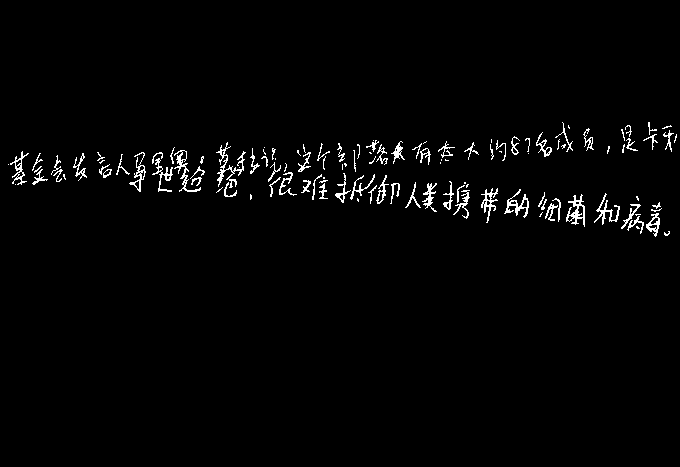 基金会发言人 莫拉说,这个部落大约87名成员,是卡
绝,很难抵御人类携带的细菌和病毒。